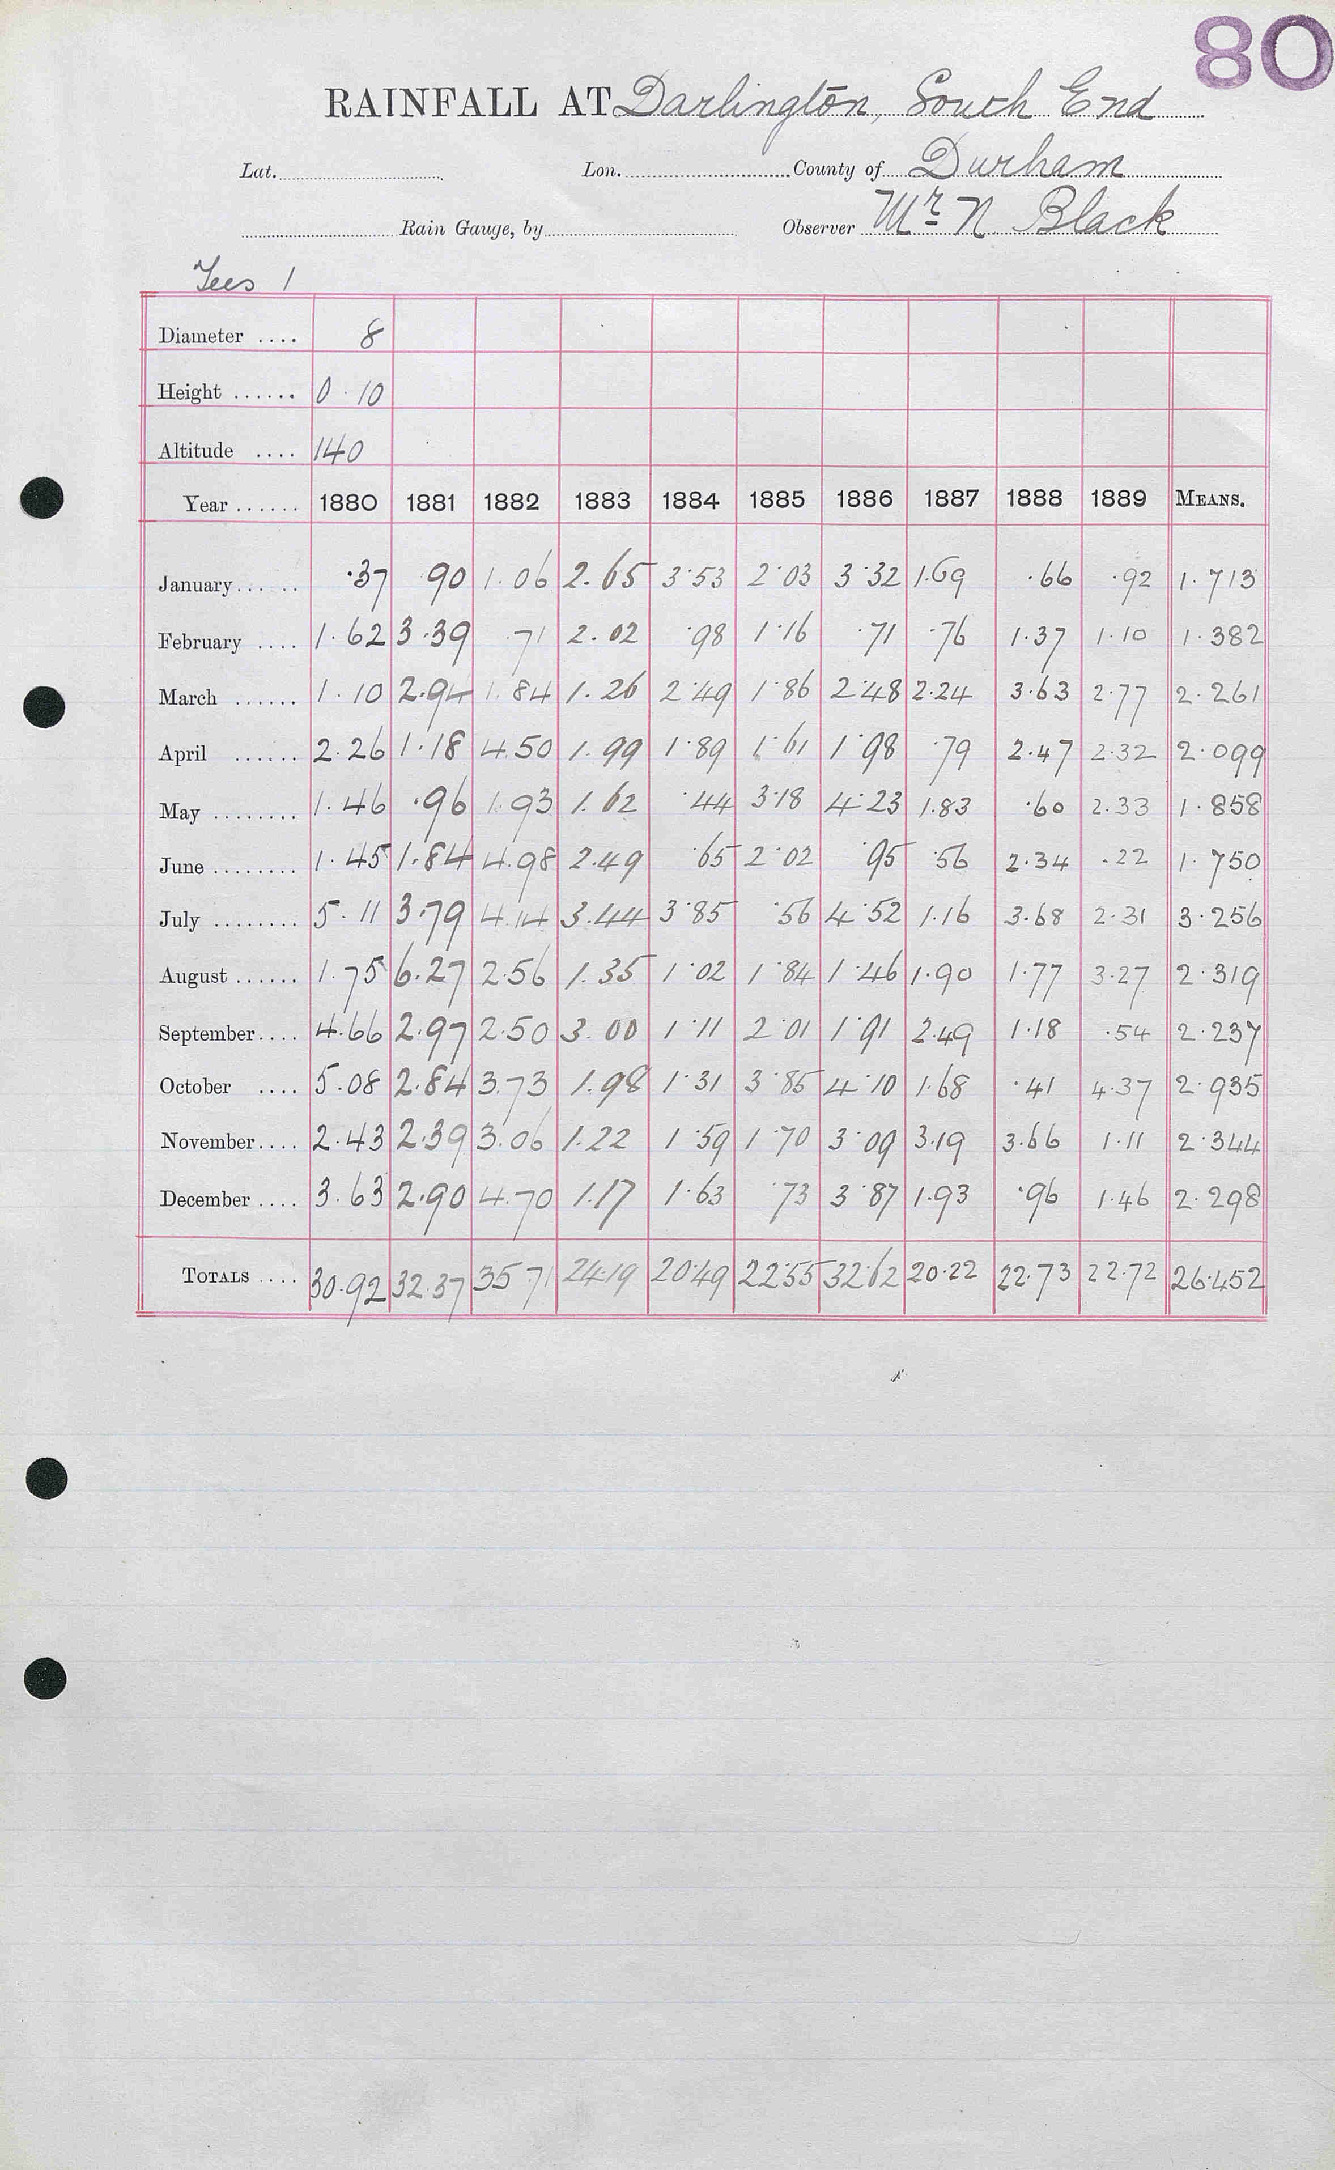 80
RAINFALL AT Darlington, South End
Lat. Lon. County of Durham
Rain Gauge, by Observer Mr N Black
Tees 1
Diameter .... 8
Height ...... 0 · 10
Altitude .... 140
Year ...... 1880 1881 1882 1883 1884 1885 1886 1887 1888 1889 MEANS.
January...... ·37 ·90 1.06 2.65 3·53 2·03 3·32 1.69 ·66 ·92 1·713
February .... 1.62 3.39 ·71 2.02 ·98 1·16 ·71 ·76 1·37 1·10 1·382
March ...... 1.10 2.94 1.84 1.26 2·49 1·86 2·48 2·24 3·63 2·77 2·261
April ...... 2.26 1.18 4.50 1.99 1·89 1·61 1·98 ·79 2·47 2·32 2·099
May ........ 1.46 ·96 1.93 1.62 ·44 3·18 4·23 1·83 ·60 2·33 1·858
June ........ 1.45 1.84 4.98 2.49 ·65 2·02 ·95 ·56 2·34 ·22 1·750
July ........ 5.11 3.79 4.14 3.44 3·85 ·56 4·52 1·16 3·68 2·31 3·256
August ...... 1.75 6.27 2.56 1.35 1·02 1·84 1·46 1·90 1·77 3·27 2·319
September.... 4.66 2.97 2.50 3.00 1·11 2·01 1·91 2·49 1·18 ·54 2·237
October .... 5.08 2.84 3.73 1.98 1·31 3·85 4·10 1·68 ·41 4·37 2·935
November.... 2.43 2.39 3.06 1.22 1·59 1·70 3·09 3·19 3·66 1·11 2·344
December .... 3.63 2.90 4.70 1.17 1·63 ·73 3·87 1·93 ·96 1·46 2·298
TOTALS .... 30.92 32.37 35 71 24.19 20.49 22.55 32.62 20·22 22·73 22·72 26·452